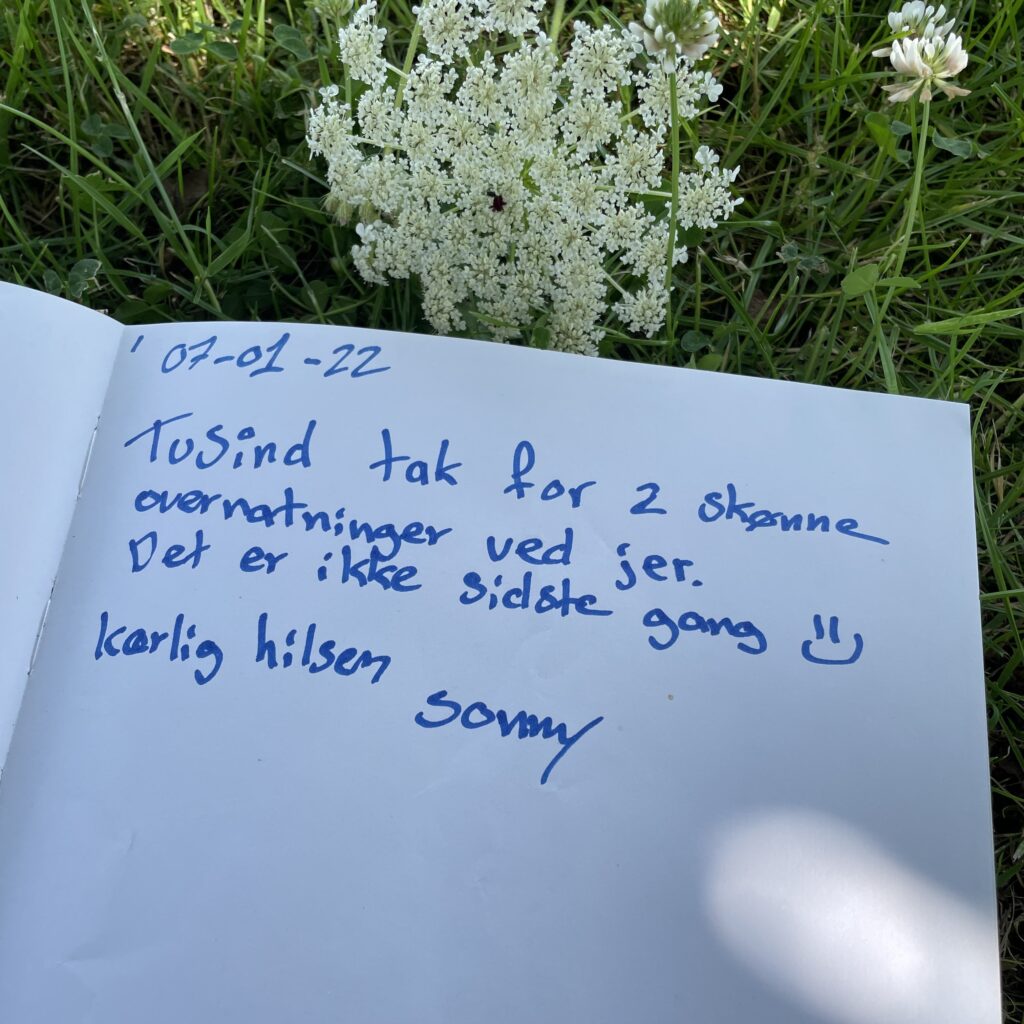 ' 07-01-22
Tusind tak for 2 skønne
overnatninger ved jer.
Det er ikke sidste gang =)
kærlig hilsen
Sonny